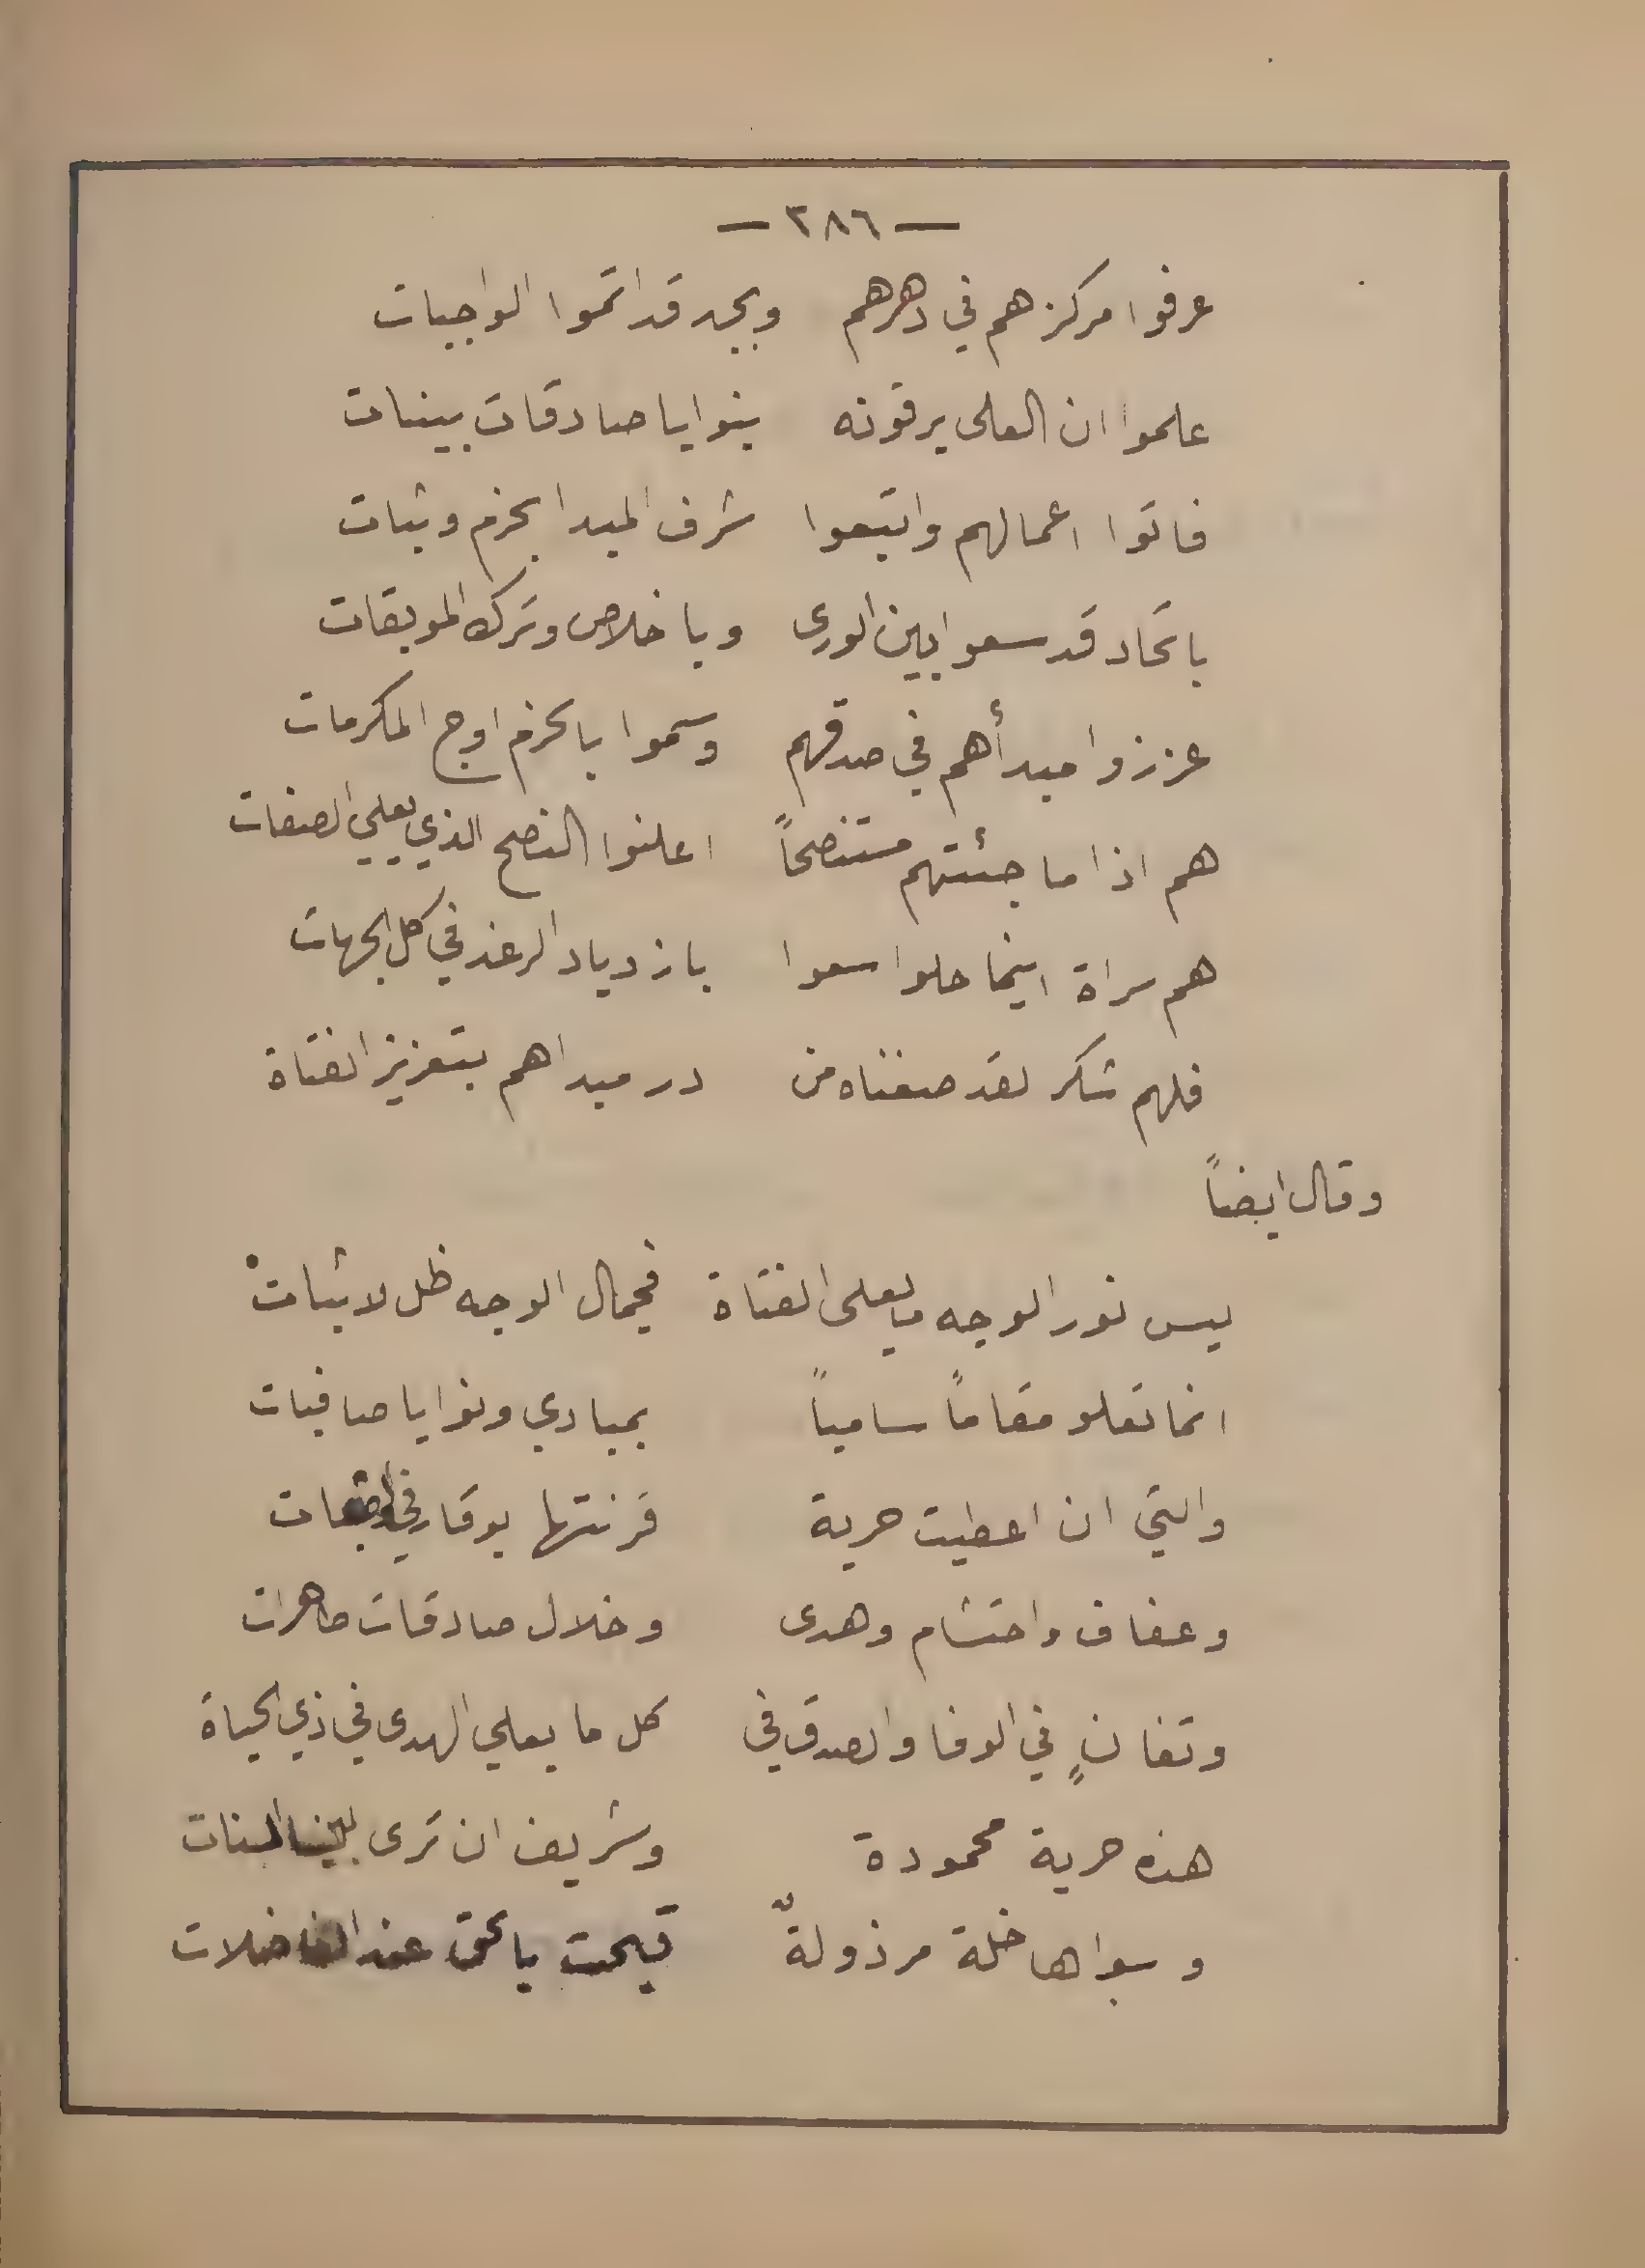 — ٣٨٦ —
عرفوا مركزهم في دهرهم وبجد قد اتموا الواجبات
علموا ان العلى يرقونه بنوايا صادقات بينات
فاتوا اعمالهم واتبعوا شرف المبدا بحزم وثبات
باتحاد قد سعوا بين الورى وباخلاص وترك الموبقات
عززوا مبدأهم في صدقهم وسموا بالحزم اوج المكرمات
هم اذا ما جئتهم مستنصحاً اعلنوا النصح الذي يعلي الصفات
هم سراة اينما حلوا سعوا بازدياد الرغد في كل الجهات
فلهم شكر لقد صغناه من در مبداهم بتعزيز الفتاة
وقال ايضاً
ليس نور الوجه ما يعلى الفتاة فجمال الوجه ظل لا ثباتْ
انما تعلو مقاماً سامياً بمبادي ونوايا صافيات
والتي ان اعطيت حرية قرنتها بوقار في
وعفاف واحتشام وهدى وخلال صادقات طاهرات
وتفانٍ في الوفا والصدق في كل ما يعلي الهدى في ذي الحياة
هذه حرية محمودة وشريف ان ترى بين البنات
وسواها خلة مرذولةٌ قبحت بالحق عند الفاضلات